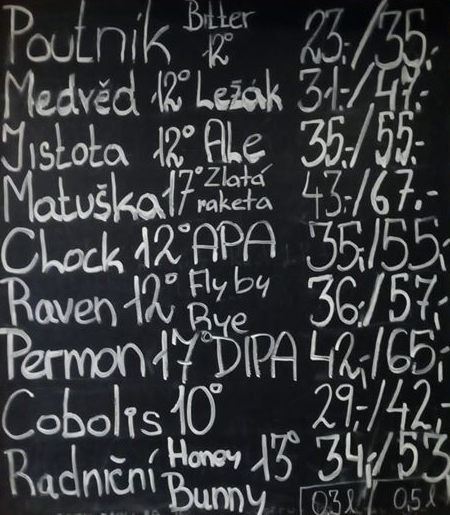 Poutník Bitter 12° 23,-/35,-
Medvěd 12° Ležák 31,-/47,-
Jistota 12° Ale 35,-/55,-
Matuška 17° Zlatá raketa 43,-/67,-
Chock 12° APA 35,-/55,-
Raven 12° Fly by Rye 36,-/57,-
Permon 17° DIPA 42,-/65,-
Cobolis 10° 29,-/42,-
Radniční Honey Bunny 13° 34,-/53
0,3 l / 0,5 l